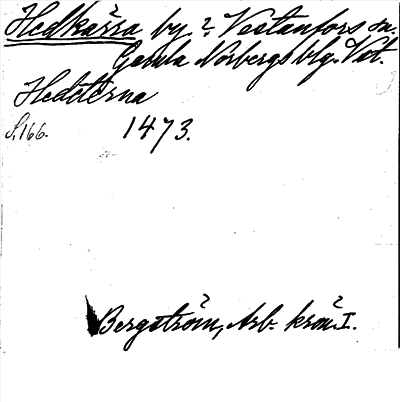 Hedkärra by? Vestanfors sn.
Gamla Norbergs blg. Vstl.
Hedeterna
S. 166. 1473.
Bergström, Arb. krön. I.